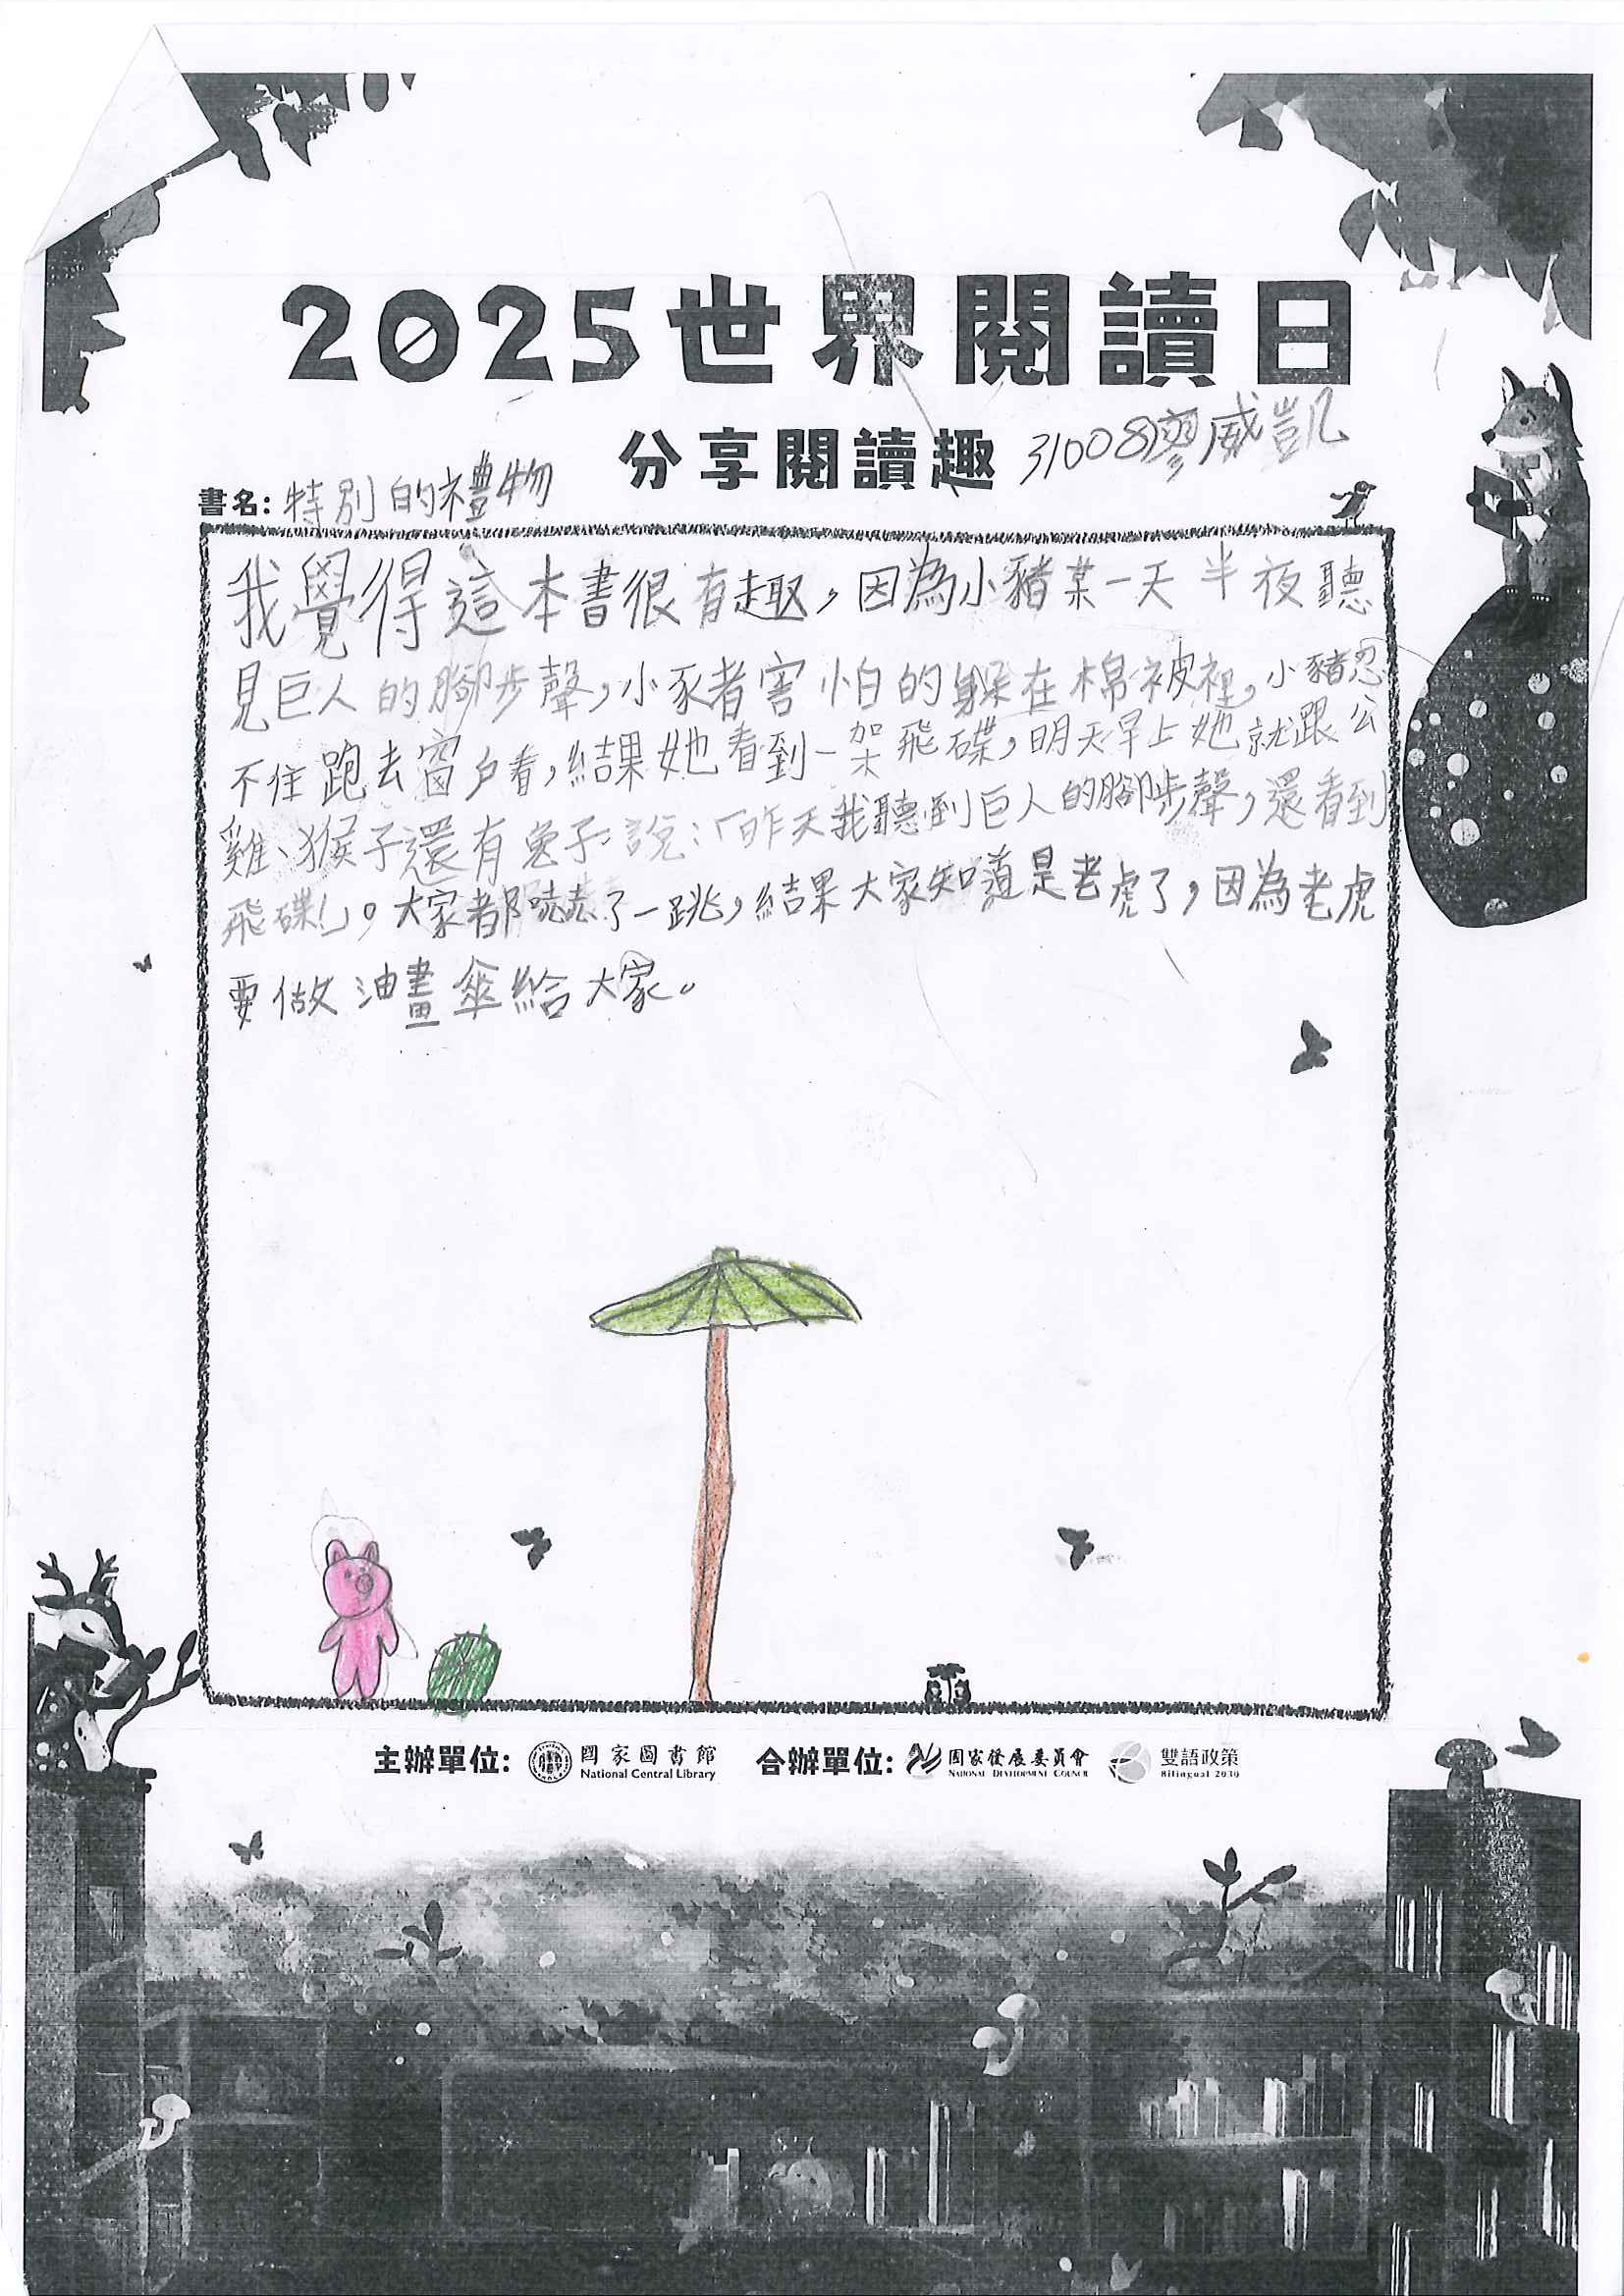 2025世界閱讀日
分享閱讀趣 31008廖威凱
書名：特別的禮物
我覺得這本書很有趣，因為小豬某一天半夜聽
見巨人的腳步聲，小豬害怕的躲在棉被裡，小豬忍
不住跑去窗戶看，結果她看到一架飛碟，明天早上她就跟公
雞、猴子還有兔子說：「昨天我聽到巨人的腳步聲，還看到
飛碟!」。大家都嚇了一跳，結果大家知道是老虎了，因為老虎
要做油畫傘給大家。
主辦單位： 國家圖書館 合辦單位： 國家發展委員會 雙語政策
National Central Library NATIONAL DEVELOPMENT COUNCIL Bilingual 2030